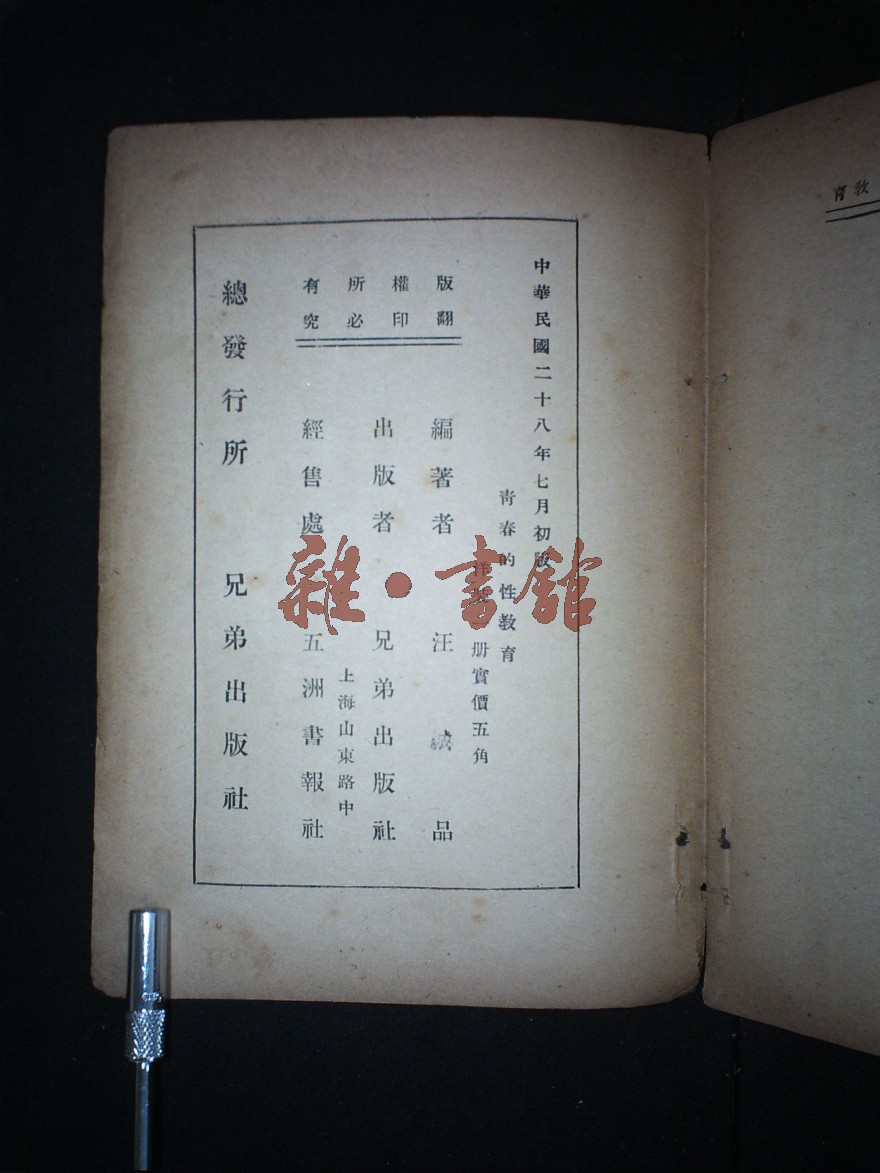 中華民國二十八年七月初版
青春的性教育
洋裝 冊實價五角
版權所有
翻印必究
編著者 汪誠品
出版者 兄弟出版社
上海山東路中
經售處 五洲書報社
總發行所 兄弟出版社
教育
雜·書館